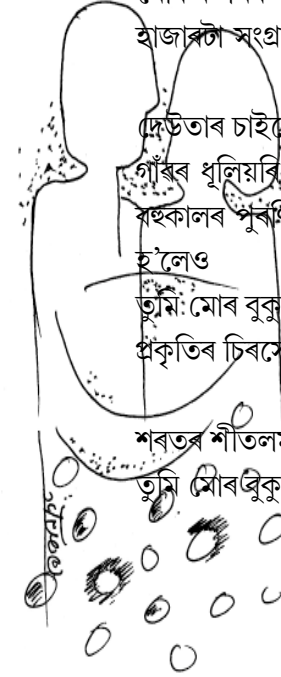 হাজাৰটা সংগ্ৰা
দেউতাৰ চাইে
গাঁৱৰ ধূলিয়ৰি
বহুকালৰ পুৰণি
হ’লেও
তুমি মোৰ বুকু
প্ৰকৃতিৰ চিৰসে
শৰতৰ শীতলঘ
তুমি মোৰ বুকু